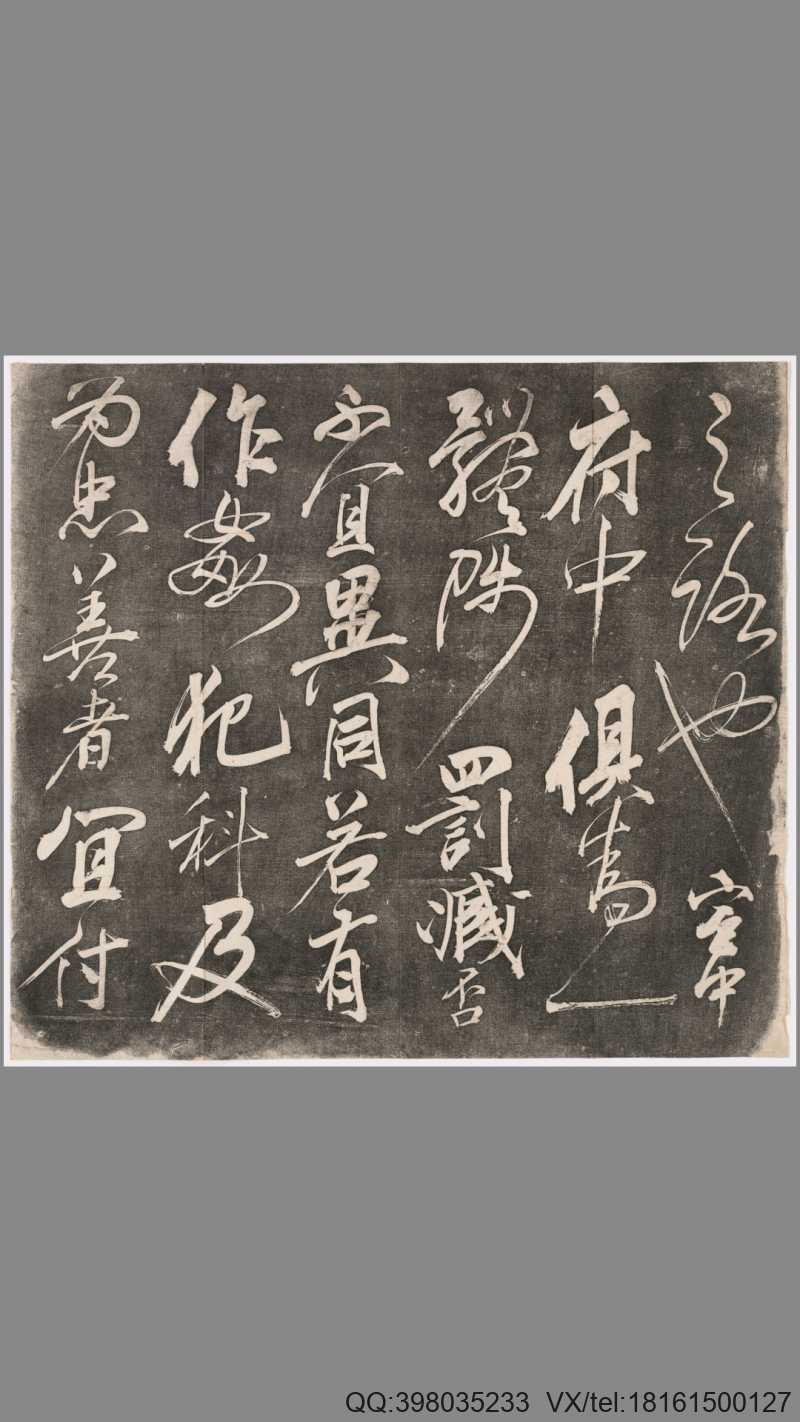 之路也宮中
府中俱為一
體陟罰臧否
不宜異同若有
作姦犯科及
為忠善者宜付
QQ:398035233 VX/tel:18161500127